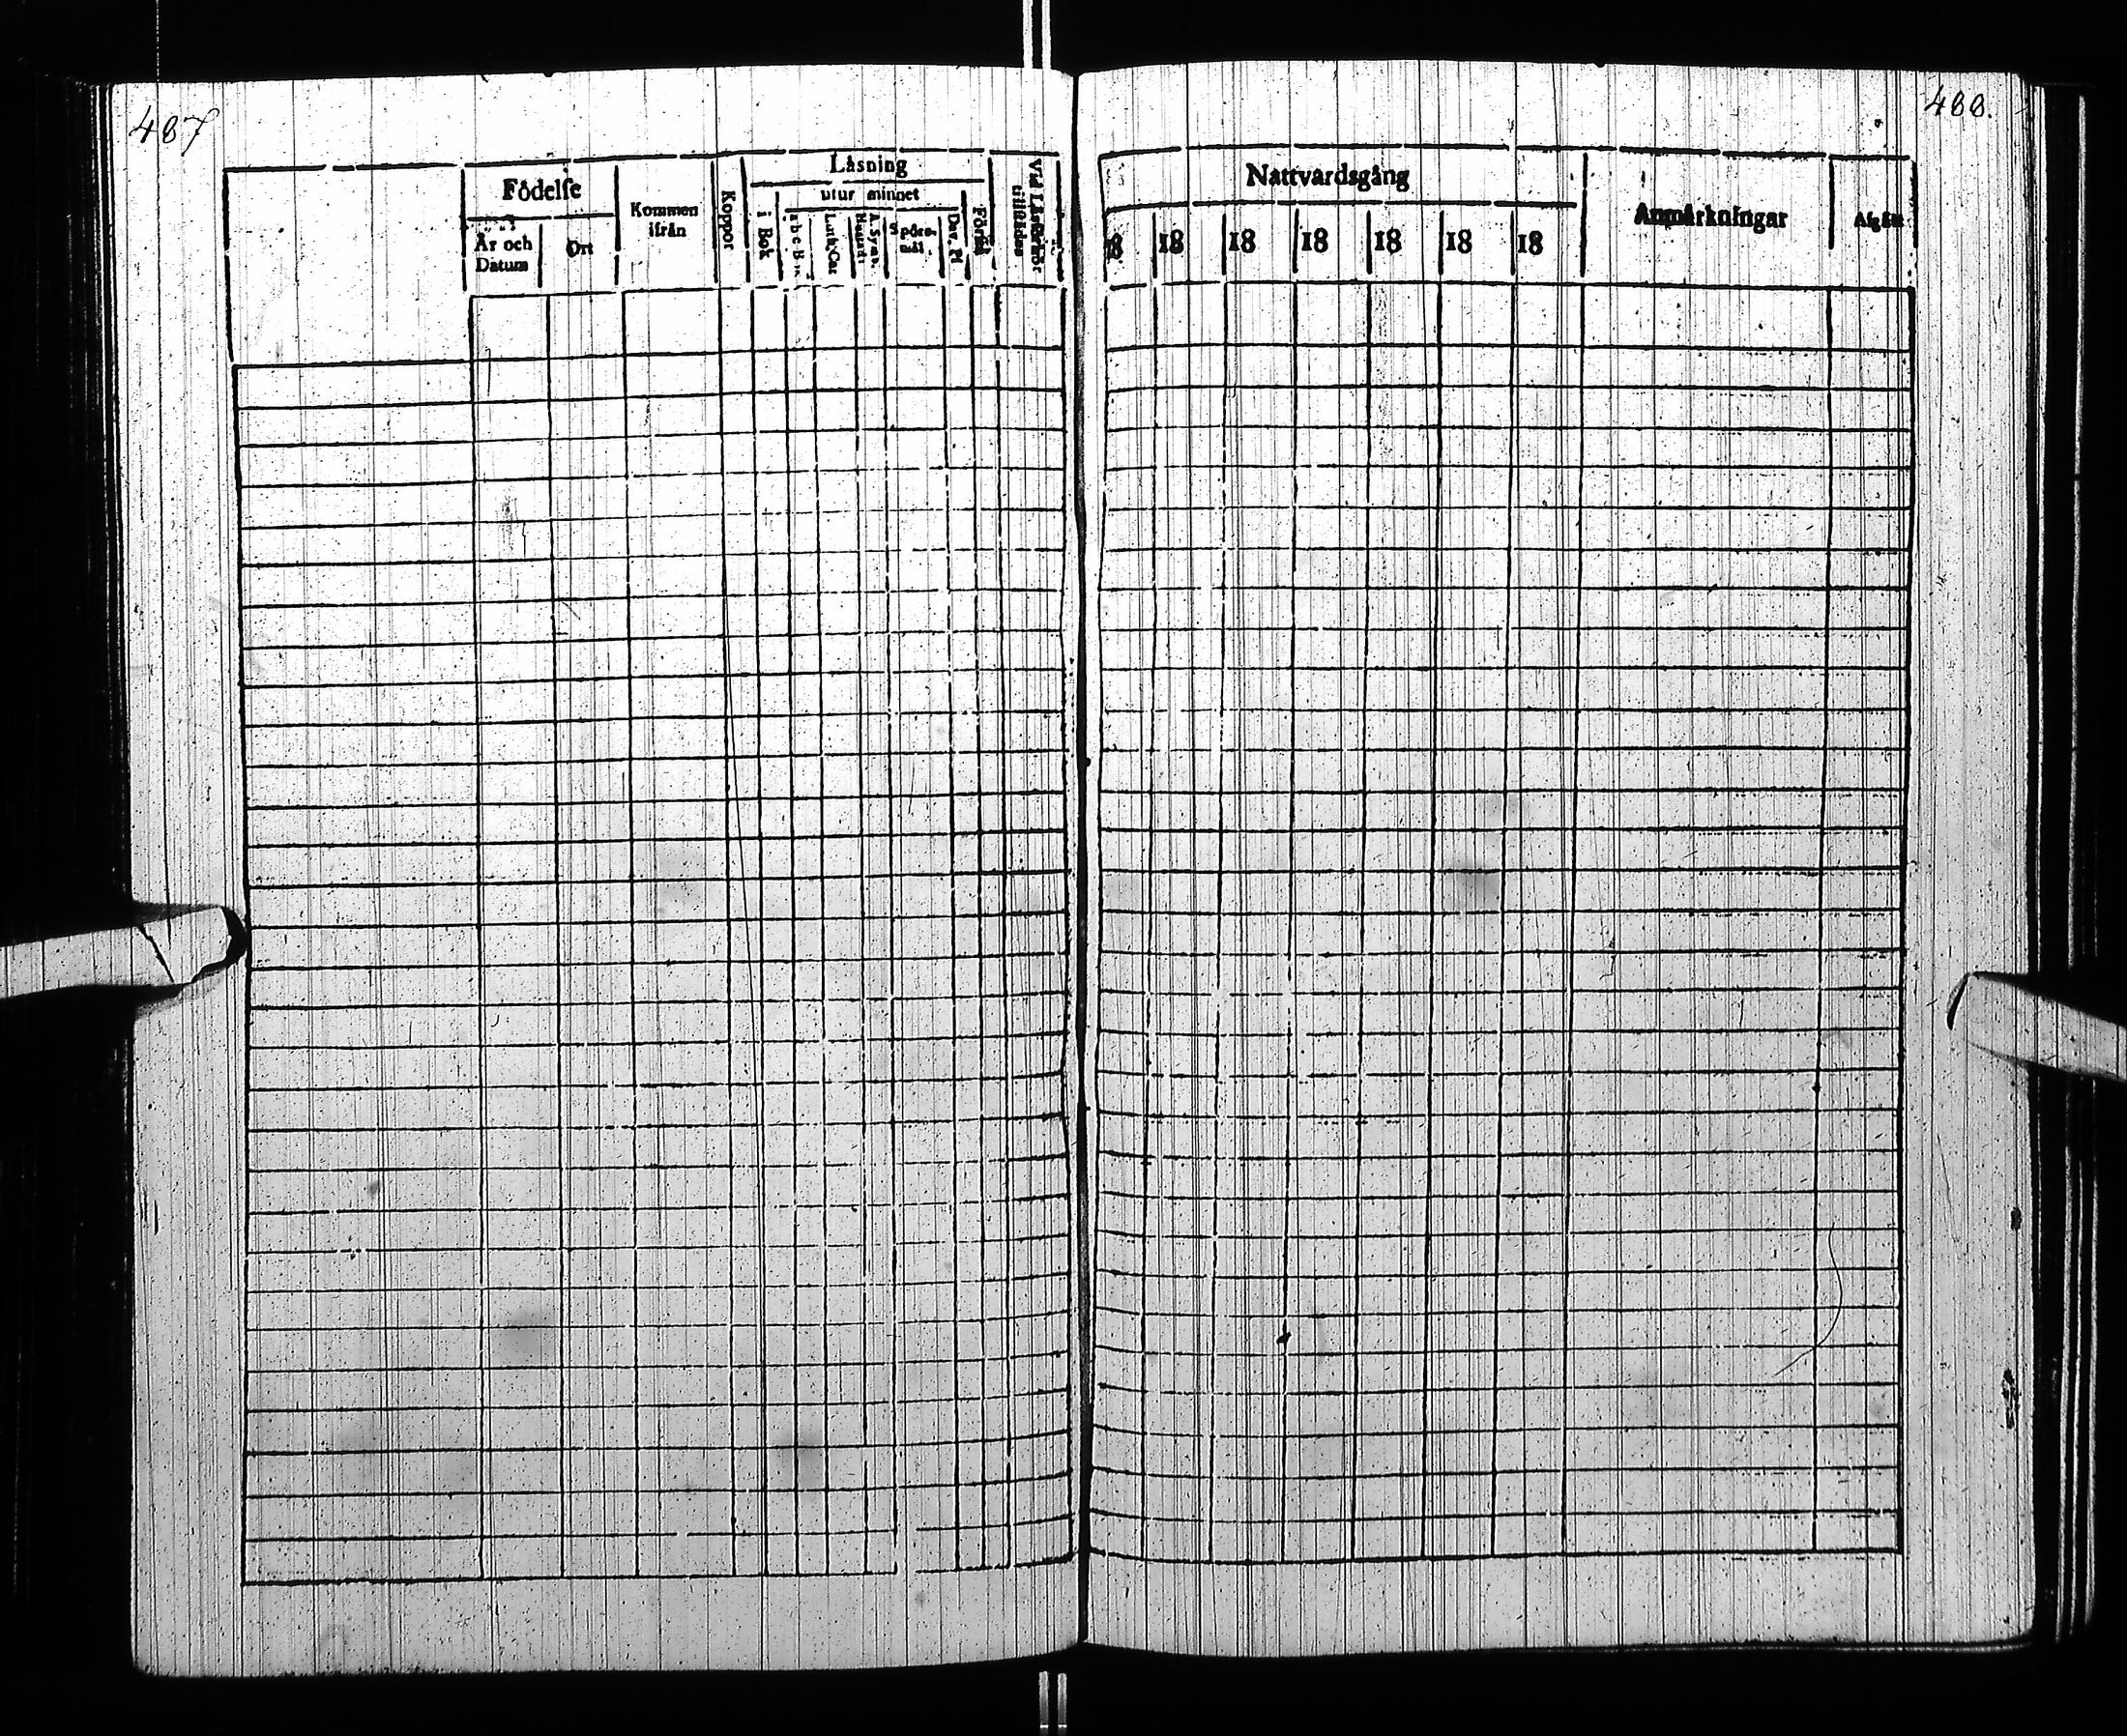 487
Födelse
År och Datum
Ort
Kommen ifrån
Koppor
Läsning
i Bok
utur minnet
a-b-c-B
Luth. Cat
A. Symb.
Hustafl.
Spörsmål
Dav. Ps
Förstå
Vid Läsförhör tillstädes
488.
Nattvardsgång
18
18
18
18
18
18
18
Anmärkningar
Afgått